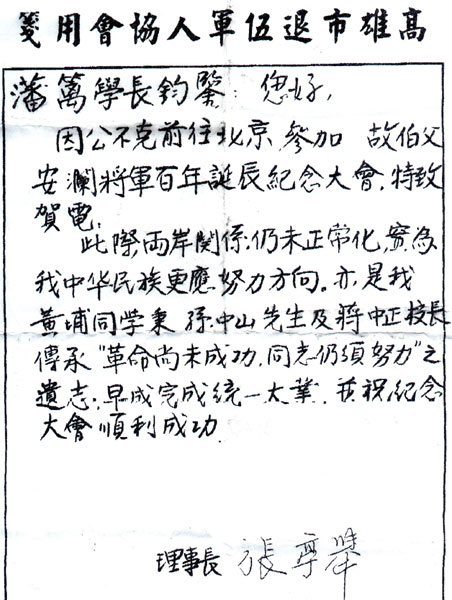 高雄市退伍軍人協會用箋
藩篱學長鈞鑒:您好,
因公不克前往北京,參加 故伯父
安瀾將軍百年誕辰紀念大會,特致
賀電,
此際,両岸関係:仍未正常化,實為
我中华民族更應努力方向。亦是我
黃埔同学秉 孫中山先生及蔣中正校長
傳承"革命尚未成功,同志仍須努力"之
遺志;早成完成統一大業,并祝紀念
大會順利成功.
理事長 張